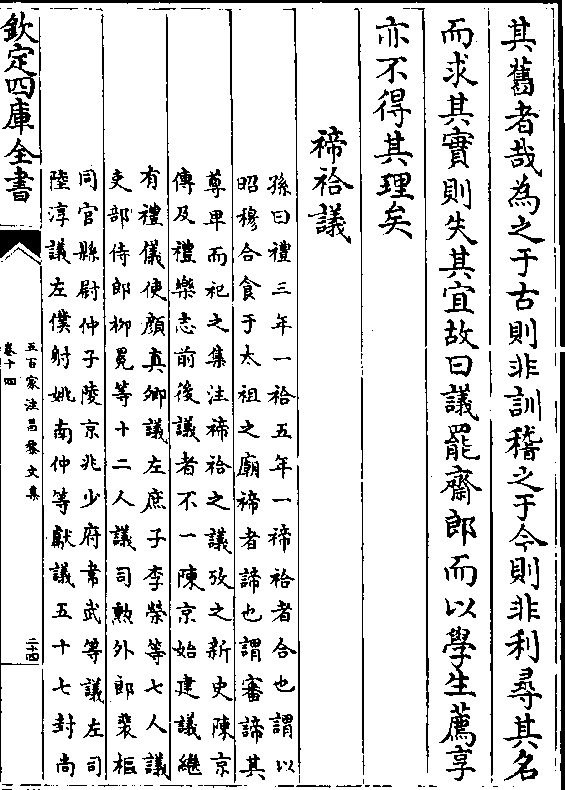 其舊者哉為之于古則非訓稽之于今則非利尋其名
而求其實則失其宜故曰議罷齋郎而以學生薦享
亦不得其理矣
禘祫議
孫曰禮三年一祫五年一禘祫者合也謂以
昭穆合食于太祖之廟禘者諦也謂審諦其
尊卑而祀之集注禘祫之議攷之新史陳京
傳及禮樂志前後議者不一陳京始建議繼
有禮儀使顔真卿議左庶子李嶸等七人議
吏部侍郎柳冕等十二人議司勲外郎裴樞
同官縣尉仲子陵京兆少府韋武等議左司
陸淳議左僕射姚南仲等獻議五十七封尚
欽定四庫全書
五百家注昌黎文集
卷十四
二十四